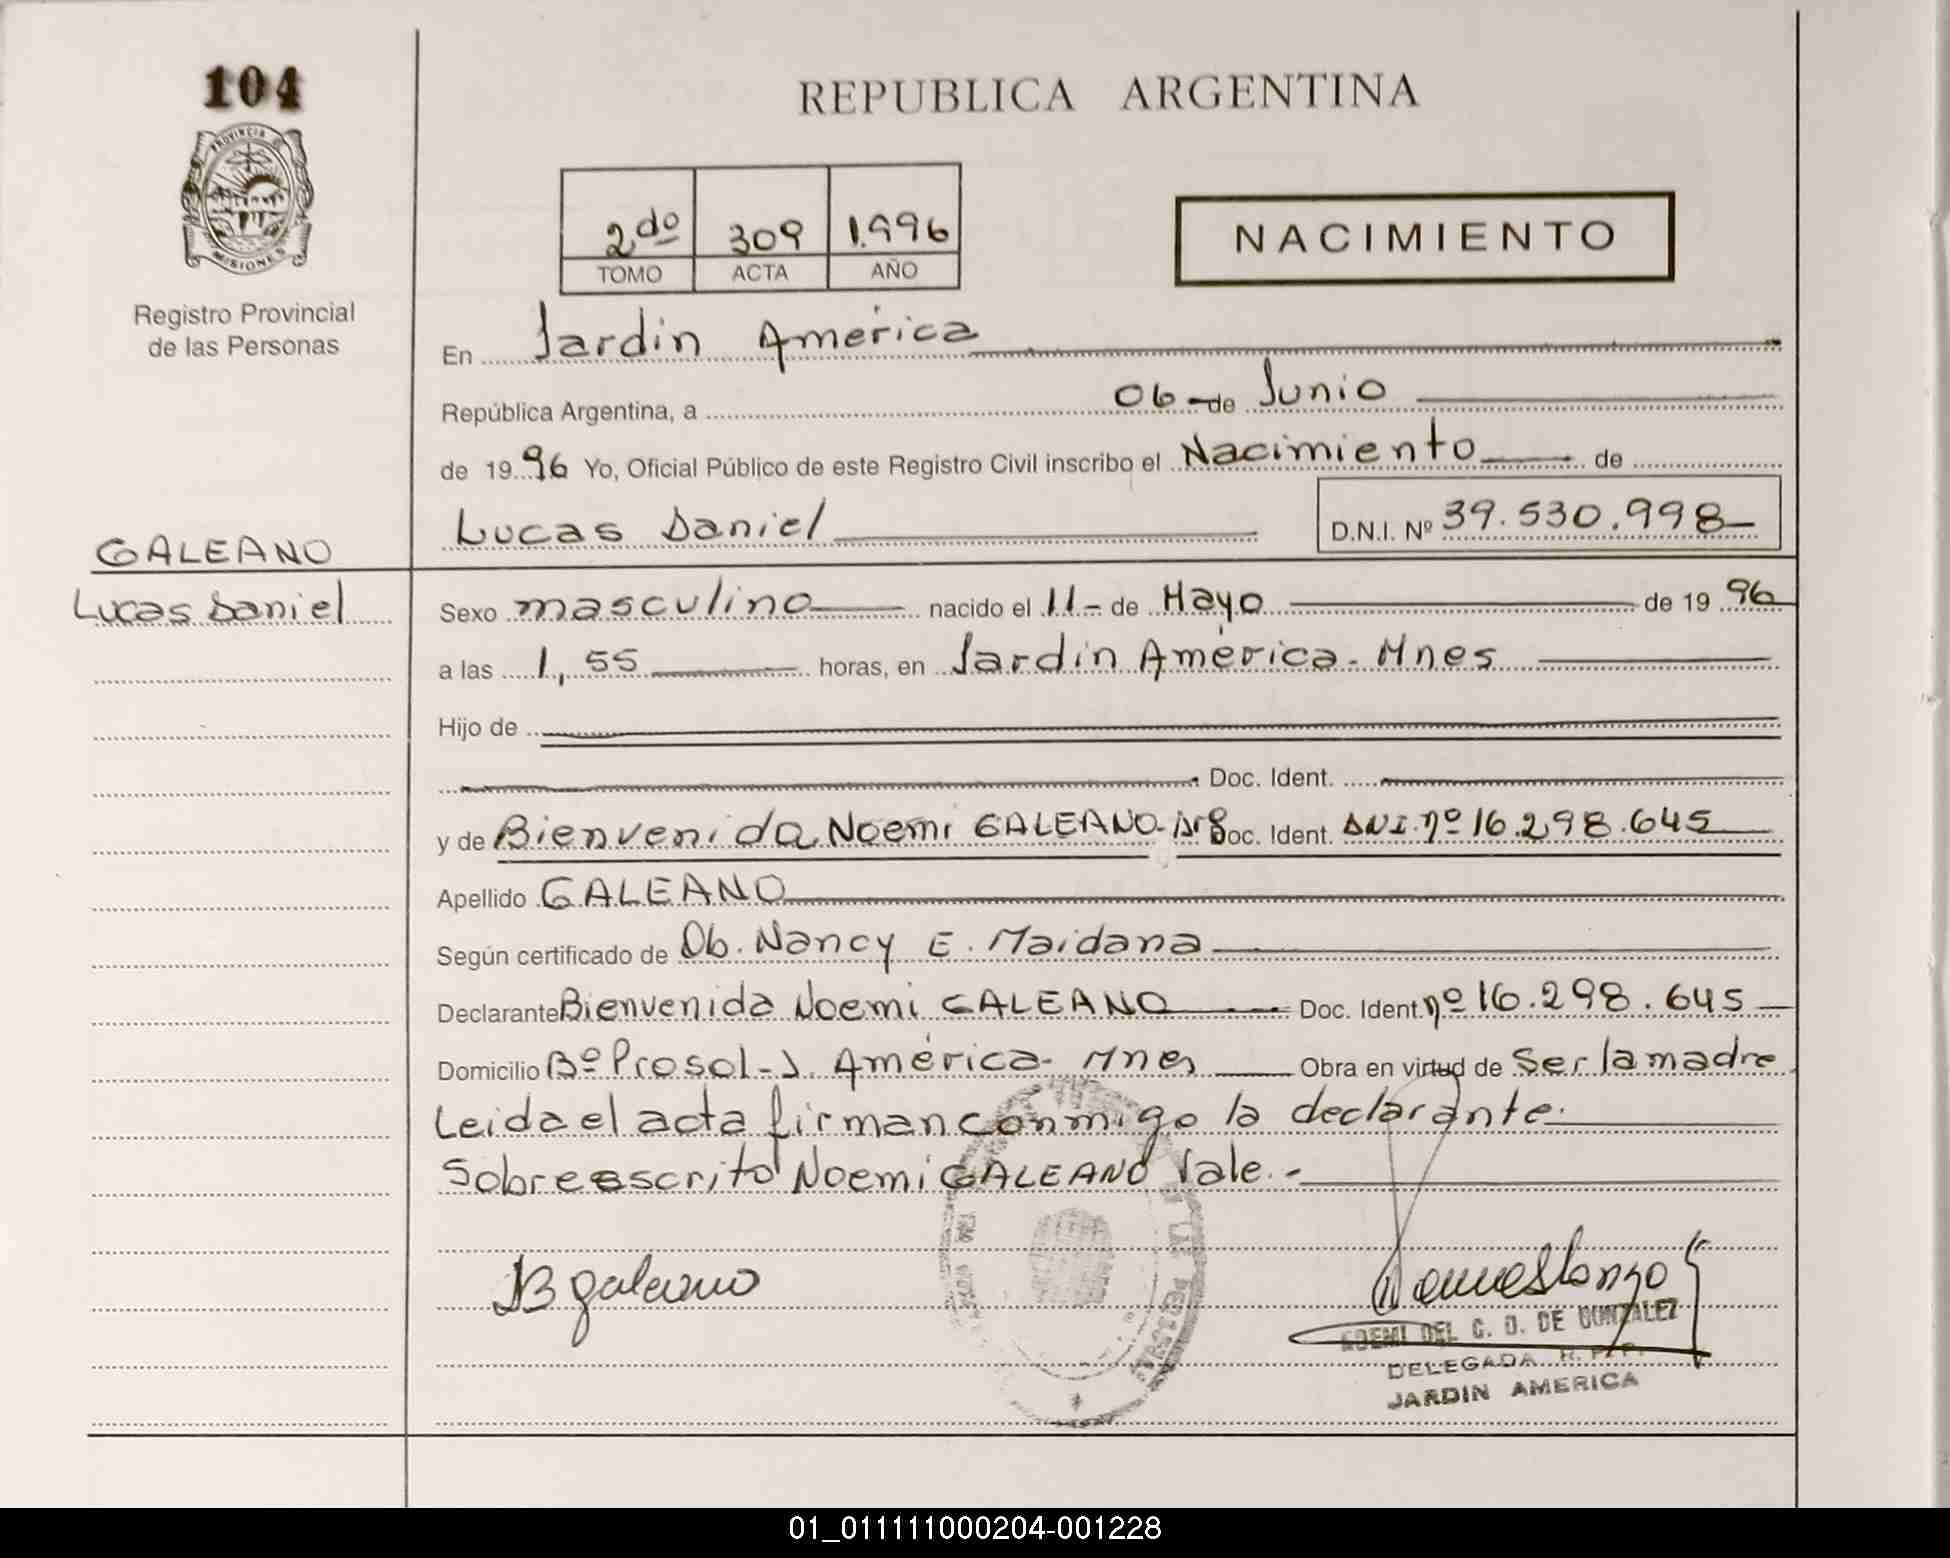 104
PROVINCIA
MISIONES
Registro Provincial
de las Personas
REPUBLICA ARGENTINA
2do 309 1.996
TOMO ACTA AÑO
NACIMIENTO
En Jardin América
República Argentina, a 06 - de Junio
de 19 96 Yo, Oficial Público de este Registro Civil inscribo el Nacimiento de
Lucas Daniel D.N.I. Nº 39.530.998
GALEANO
Lucas Daniel
Sexo masculino nacido el 11 - de Mayo de 19 96
a las 1,55 horas, en Jardin América - Mnes
Hijo de
Doc. Ident.
y de Bienvenida Noemi GALEANO - Arg Doc. Ident. DNI. nº 16.298.645
Apellido GALEANO
Según certificado de Ob. Nancy E. Maidana
Declarante Bienvenida Noemi GALEANO Doc. Ident. nº 16.298.645
Domicilio Bº Prosol - J. América - Mnes Obra en virtud de Ser la madre
Leida el acta firman conmigo la declarante.
Sobreescrito Noemi GALEANO Vale. -
B galeano
NOEMI DEL C. D. DE GONZALEZ
DELEGADA R. P. P.
JARDIN AMERICA
01_011111000204-001228